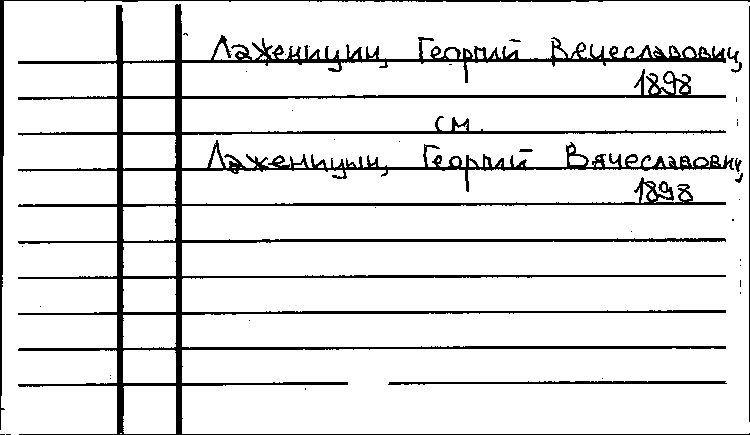 Лаженицин, Георгий Вецеславович,
1898
см.
Лаженицын, Георгий Вячеславович,
1898